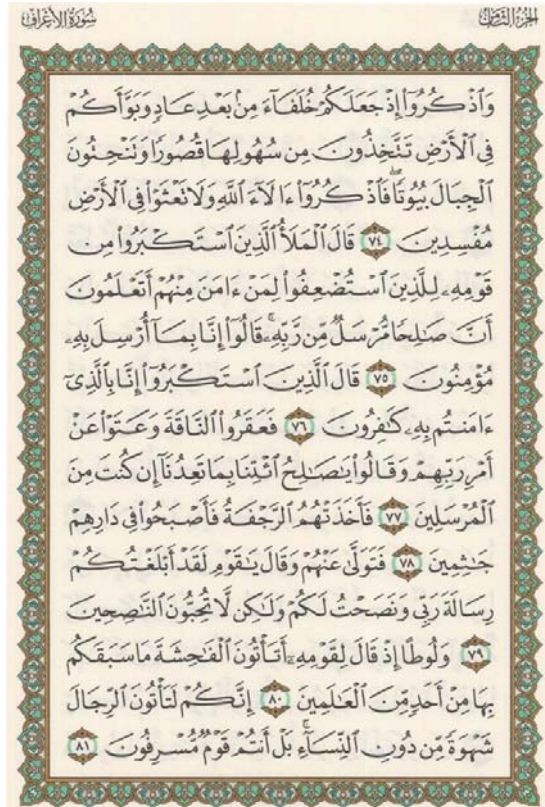 الجزء الثامن سورة الأعراف
وَٱذۡكُرُوٓاْ إِذۡ جَعَلَكُمۡ خُلَفَآءَ مِنۢ بَعۡدِ عَادٖ وَبَوَّأَكُمۡ
فِي ٱلۡأَرۡضِ تَتَّخِذُونَ مِن سُهُولِهَا قُصُورٗا وَتَنۡحِتُونَ
ٱلۡجِبَالَ بُيُوتٗاۖ فَٱذۡكُرُوٓاْ ءَالَآءَ ٱللَّهِ وَلَا تَعۡثَوۡاْ فِي ٱلۡأَرۡضِ
مُفۡسِدِينَ ٧٤ قَالَ ٱلۡمَلَأُ ٱلَّذِينَ ٱسۡتَكۡبَرُواْ مِن
قَوۡمِهِۦ لِلَّذِينَ ٱسۡتُضۡعِفُواْ لِمَنۡ ءَامَنَ مِنۡهُمۡ أَتَعۡلَمُونَ
أَنَّ صَٰلِحٗا مُّرۡسَلٞ مِّن رَّبِّهِۦۚ قَالُوٓاْ إِنَّا بِمَآ أُرۡسِلَ بِهِۦ
مُؤۡمِنُونَ ٧٥ قَالَ ٱلَّذِينَ ٱسۡتَكۡبَرُوٓاْ إِنَّا بِٱلَّذِيٓ
ءَامَنتُم بِهِۦ كَٰفِرُونَ ٧٦ فَعَقَرُواْ ٱلنَّاقَةَ وَعَتَوۡاْ عَنۡ
أَمۡرِ رَبِّهِمۡ وَقَالُواْ يَٰصَٰلِحُ ٱئۡتِنَا بِمَا تَعِدُنَآ إِن كُنتَ مِنَ
ٱلۡمُرۡسَلِينَ ٧٧ فَأَخَذَتۡهُمُ ٱلرَّجۡفَةُ فَأَصۡبَحُواْ فِي دَارِهِمۡ
جَٰثِمِينَ ٧٨ فَتَوَلَّىٰ عَنۡهُمۡ وَقَالَ يَٰقَوۡمِ لَقَدۡ أَبۡلَغۡتُكُمۡ
رِسَالَةَ رَبِّي وَنَصَحۡتُ لَكُمۡ وَلَٰكِن لَّا تُحِبُّونَ ٱلنَّٰصِحِينَ
٧٩ وَلُوطًا إِذۡ قَالَ لِقَوۡمِهِۦٓ أَتَأۡتُونَ ٱلۡفَٰحِشَةَ مَا سَبَقَكُم
بِهَا مِنۡ أَحَدٖ مِّنَ ٱلۡعَٰلَمِينَ ٨٠ إِنَّكُمۡ لَتَأۡتُونَ ٱلرِّجَالَ
شَهۡوَةٗ مِّن دُونِ ٱلنِّسَآءِۚ بَلۡ أَنتُمۡ قَوۡمٞ مُّسۡرِفُونَ ٨١